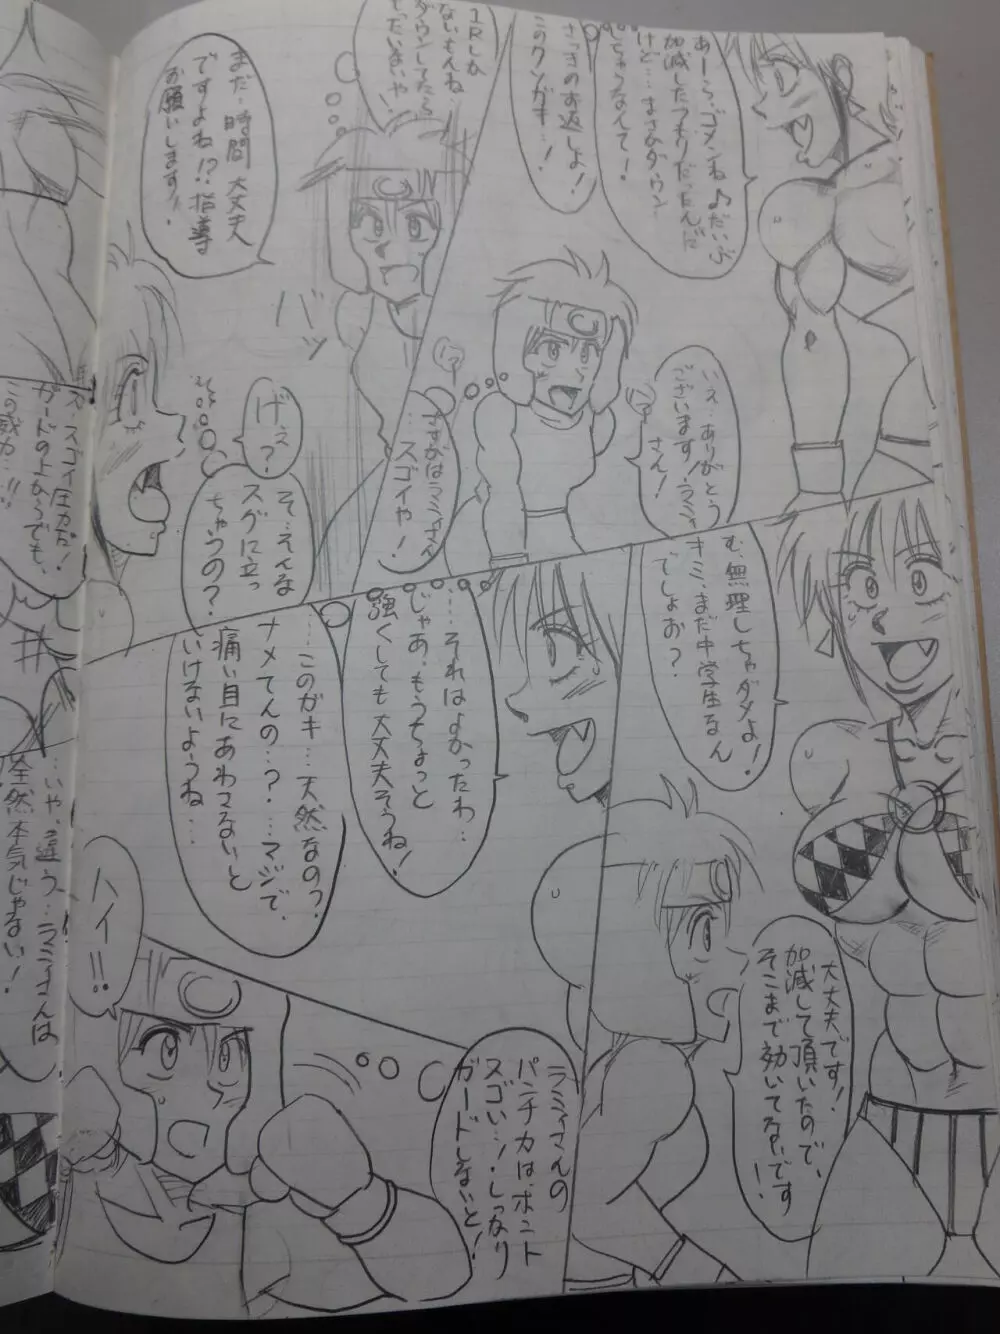 あーら、ゴメンね♪だいぶ
加減したつもりだったんだ
けど…まさかダウン
しちゃうなんて！
さっきのお返しよ！
このクソガキ…！
いえ…ありがとう
ございます！ラミィ
さん！
さすがはラミィさん
…スゴイや！
1Rしか
ないもんね…
ダウンしてたら
もったいないや
まだ、時間大丈夫
ですよね!?指導
お願いします!!
バッ
げぇ？
そ…そんな
スグに立っ
ちゃうの？
む、無理しちゃダメよ！
キミ、まだ中学生なん
でしょお？
大丈夫です！
加減して頂いたので、
そこまで効いてないです！
…それはよかったわ…
じゃあ、もうちょっと
強くしても大丈夫そうね！
…このガキ…天然なの？
ナメてんの…？…マジで、
痛い目にあわさないと
いけないようね…
ラミィさんの
パンチ力は、ホント
スゴい…！しっかり
ガードしないと！
ハイ!!
ス、スゴイ圧力だ！
ガードの上からでも、
この威力…!!
…いや、違う…ラミィさんは
全然本気じゃない！